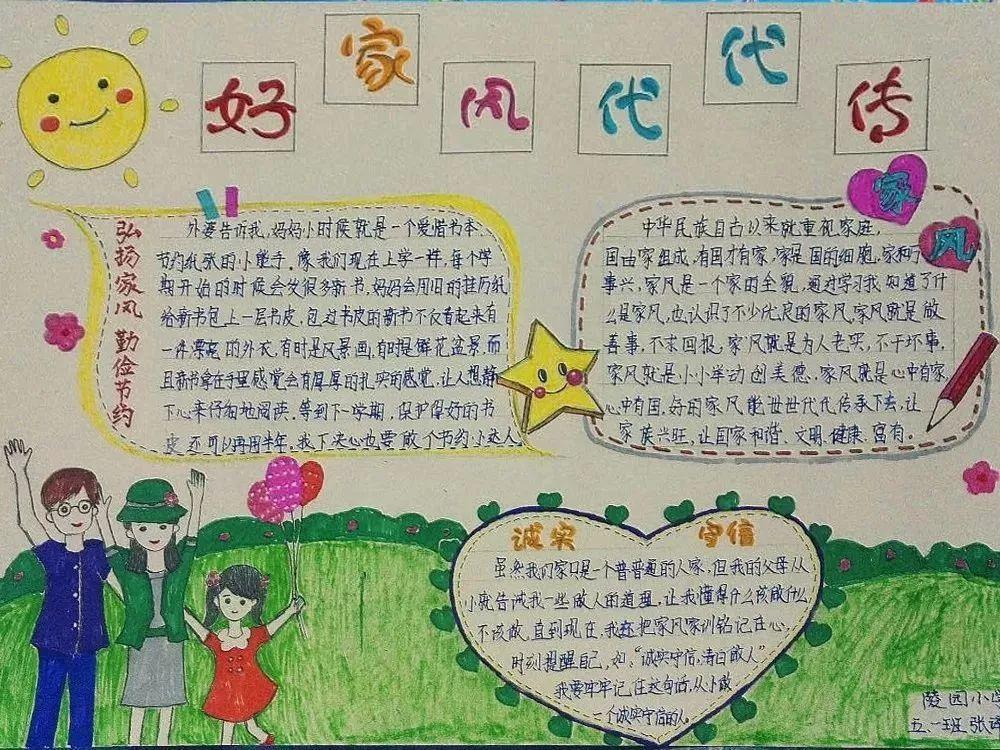 好家风代代传
弘扬家风 勤俭节约
外婆告诉我,妈妈小时候就是一个爱惜书本、
节约纸张的小能手。像我们现在上学一样,每个学
期开始的时候会发很多新书,妈妈会用旧的挂历纸
给新书包上一层书皮,包过书皮的新书不仅看起来有
一件漂亮的外衣,有时是风景画,有时是鲜花盆景,而
且新书拿在手里感觉会有厚厚的扎实的感觉,让人想静
下心来仔细地阅读。等到下一学期,保护得好的书
皮还可以再用半年。我下决心也要做个节约小达人
家风
中华民族自古以来就重视家庭,
国由家组成,有国才有家,家是国的细胞,家和万
事兴,家风是一个家的全貌。通过学习我知道了什
么是家风,也认识了不少优良的家风,家风就是做
善事,不求回报。家风就是为人老实,不干坏事。
家风就是小小举动创美德。家风就是心中有家,
心中有国。好的家风能世世代代传承下去,让
家族兴旺,让国家和谐、文明、健康、富有。
诚实 守信
虽然我们家只是一个普普通通的人家,但我的父母从
小就告诫我一些做人的道理,让我懂得什么该做什么
不该做,直到现在,我还把家风家训铭记在心。
时刻提醒自己,如:“诚实守信,清白做人”
我要牢牢记住这句话,从小做
一个诚实守信的人。
陵园小
五.一班 张